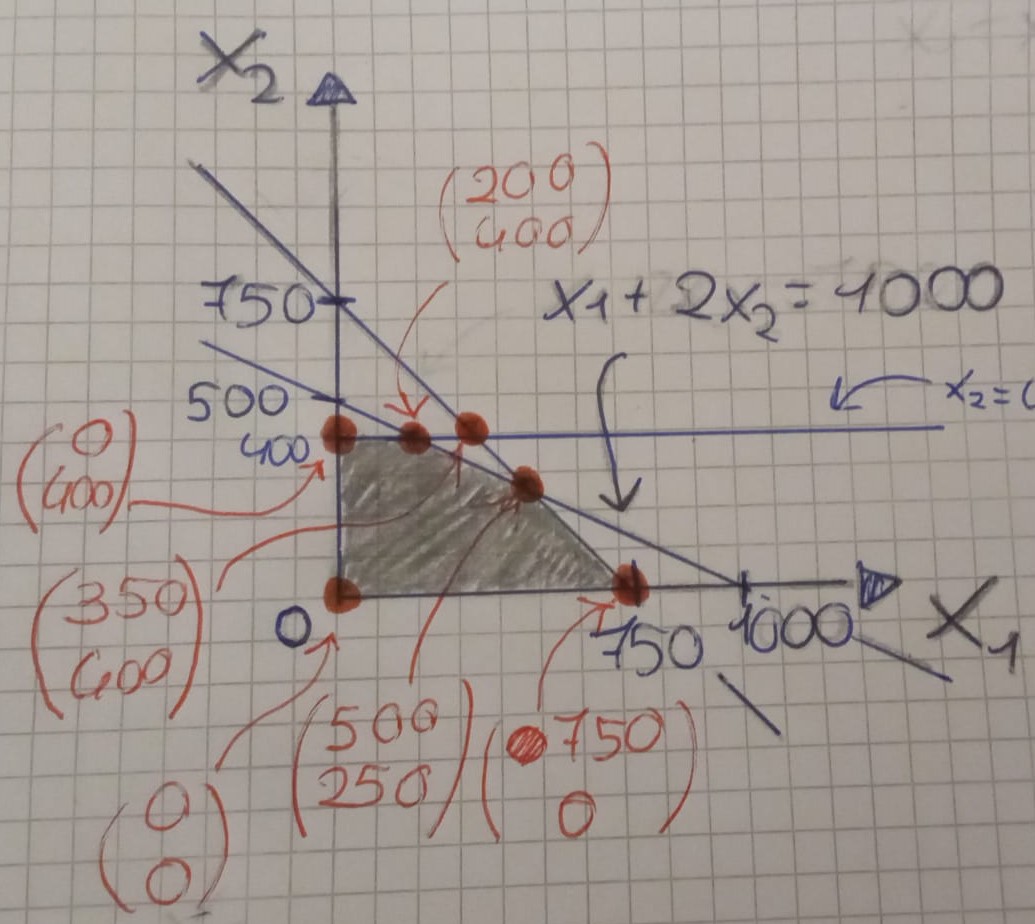 X₂
(200
400)
750
x₁ + 2x₂ = 1000
500
x₂ =
400
(0
400)
(350
400)
0
750
1000
X₁
(500
250)
(750
0)
(0
0)